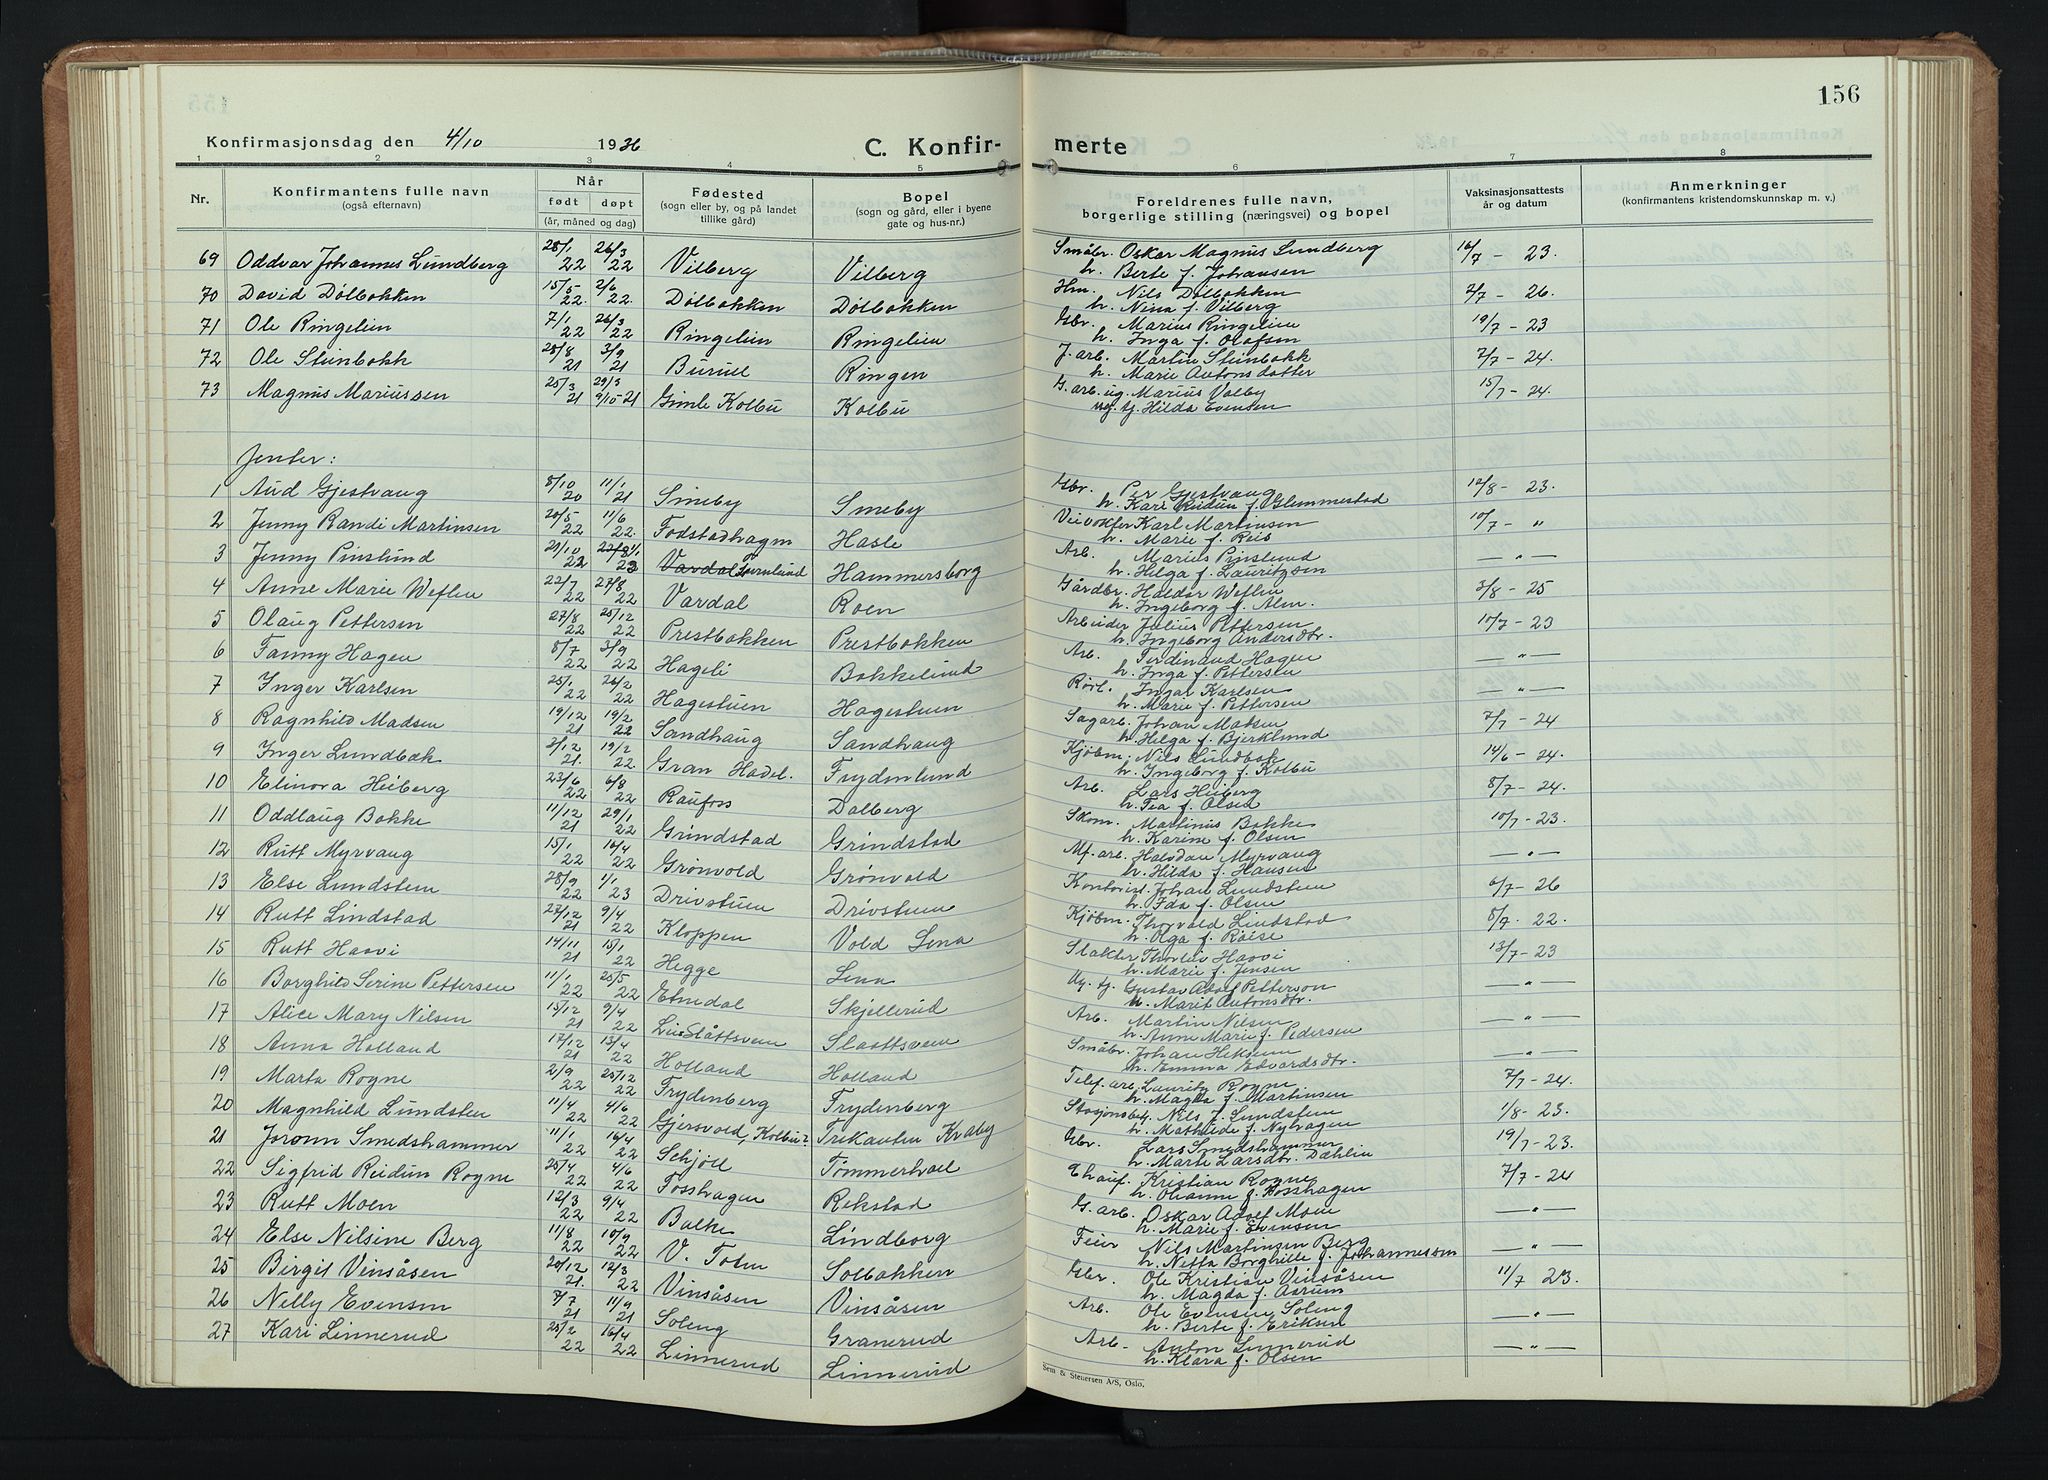 156
Konfirmasjonsdag den 4/10 1936
C. Konfirmerte
1 2 3 4 5 6 7 8
Nr. | Konfirmantens fulle navn (også efternavn) | Når født døpt (år, måned og dag) | Fødested (sogn eller by, og på landet tillike gård) | Bopel (sogn og gård, eller i byene gate og hus-nr.) | Foreldrenes fulle navn, borgerlige stilling (næringsvei) og bopel | Vaksinasjonsattests år og datum | Anmerkninger (konfirmantens kristendomskunnskap m. v.)
69 Oddvar Johannes Lundberg 28/1 22 26/3 22 Vilberg Vilberg Småbr. Oskar Magnus Lundberg h. Berte f. Johansen 16/7 - 23.
70 David Dølbakken 15/5 22. 2/6 22. Dølbakken Dølbakken Hm. Nils Dølbakken h. Nina f. Vilberg 2/7 - 26.
71 Ole Ringelien 7/1 22 26/3 22 Ringelien Ringelien Gbr. Marius Ringelien h. Inga f. Olafsen 19/7 - 23
72 Ole Steinbakk 28/8 21 3/9 21 Buruel Ringen J. arb. Martin Steinbakk h. Marie Antonsdatter 7/7 - 24.
73 Magnus Mariussen 25/3 21 29/3 9/10 21 Gimle Kolbu Kolbu G. arb. ug. Marius Valby og tj. Hilda Evensen 15/7 - 24.
Jenter:
1 Aud Gjestvang 8/10 20 11/1 21 Smeby Smeby Gbr. Per Gjestvang h. Kari Reidun f. Glemmestad 12/8 - 23.
2 Jenny Randi Martinsen 20/5 22 11/6 22. Fodstadhagen Hasle Veivokter Karl Martinsen h. Marie f. Reis 10/7 - "
3 Jenny Pinslund 21/10 22 1/1 23 Vardal Furulund Hammersborg Arb. Marius Pinslund h. Helga f. Lauritzsen — " —
4 Anne Marie Weflen 22/7 22 27/8 22 Vardal Roen Gårdbr. Haldor Weflen h. Ingeborg f. Alm. 3/8 - 25
5 Olaug Pettersen 27/8 22 25/12 22 Prestbakken Prestbakken Arbeider Julius Pettersen h. Ingeborg Andersdtr. 10/7 - 23
6 Fanny Hagen 8/7 22 3/9 22 Hageli Bakkelund Arb. Ferdinand Hagen h. Inga f. Pettersen — " —
7 Inger Karlsen 25/1 22 26/2 22 Hagestuen Hagestuen Rørl. Ingar Karlsen h. Marie f. Pettersen — " —
8 Ragnhild Madsen 19/12 21 19/2 22 Sandhaug Sandhaug Sagarb. Johan Matsen h. Helga f. Bjerklund 7/7 - 24
9 Inger Lundbæk 3/12 21. 19/2 22 Gran Hadel. Frydenlund Kjøbm. Nils Lundbæk h. Ingeborg f. Kolbu 14/6 - 24.
10 Elinora Heiberg 23/6 22 6/8 22 Raufoss Dalberg Arb. Lars Heiberg h. Tea f. Olsen 8/7 - 24.
11 Oddlaug Bakke 11/12 21 29/1 22 Grindstad Grindstad Skom. Martinus Bakke h. Karine f. Olsen 10/7 - 23.
12 Rutt Myrvang 15/1 22 16/4 22 Grønvold Grønvold Mf. arb. Halvdan Myrvang h. Hilda f. Hansen — " —
13 Else Lundsten 28/9 22 1/1 23 Drivstuen Drivstuen Kontorist. Johan Lundsten h. Ida f. Olsen 6/7 - 26
14 Rutt Lindstad 27/12 21 9/4 22 Kloppen Vold Lena Kjøbm. Thorvald Lindstad h. Olga f. Røise 8/7 - 22.
15 Rutt Haavi 14/11 21 15/1 22 Hegge Lena Slakter Thorleiv Haavi h. Marie f. Jensen 13/7 - 23
16 Borghild Serine Pettersen 11/1 22 25/5 22 Etnedal Skjellerud Ug. tj. Gustav Adolf Petterson u. Marit Antonsdtr. — " —
17 Alice Mary Nilsen 15/12 21 9/4 22 Slåttsveen Slaattsveen Arb. Martin Nilsen h. Anne Marie f. Pedersen — " —
18 Anna Holland 17/12 21 13/4 22 Holland Holland Småbr. Johan Heksum h. Emma Edvardsdtr. — " —
19 Marta Rogne 2/9 22 25/12 22 Frydenberg Frydenberg Telef. arb. Lauritz Rogne h. Magda f. Martinsen 7/7 - 24.
20 Magnhild Lundsten 11/4 22 4/6 22 Gjersvold, Kolbu? Trekanten Kraby Stasjonsbetj. Nils J. Lundsten h. Mathilde f. Nyhagen 1/8 - 23.
21 Jorunn Smedshammer 11/1 22 16/4 22 Schjøll Tømmerhol Gbr. Lars Smedshammer h. Marte Larsdtr. Dæhlin 19/7 - 23.
22 Sigfrid Reidun Rogne 25/4 22 4/6 22 Fosshagen Rekstad Chauf. Kristian Rogne h. Oleanne f. Fosshagen 7/7 - 24
23 Rutt Moen 12/3 22 9/4 22 Balke Lindborg G. arb. Oskar Adolf Moen h. Marie f. Evensen — " —
24 Else Nilsine Berg 11/8 22 10/9 22 V. Toten Solbakken Feier Nils Martinsen Berg h. Netta Borghille f. Johannessen — " —
25 Birgit Vinsåsen 20/12 21. 12/3 22 Vinsåsen Vinsåsen Gbr. Ole Kristian Vinsåsen h. Magda f. Aurum 11/7 23.
26 Nelly Evensen 7/7 21 11/9 21 Soleng Granerud Arb. Ole Evensen Soleng h. Berte f. Eriksen — " —
27 Kari Linnerud 25/2 22 16/4 22 Linnerud Linnerud Arb. Anton Linnerud h. Klara f. Olsen — " —
Sem & Stenersen A/S, Oslo.